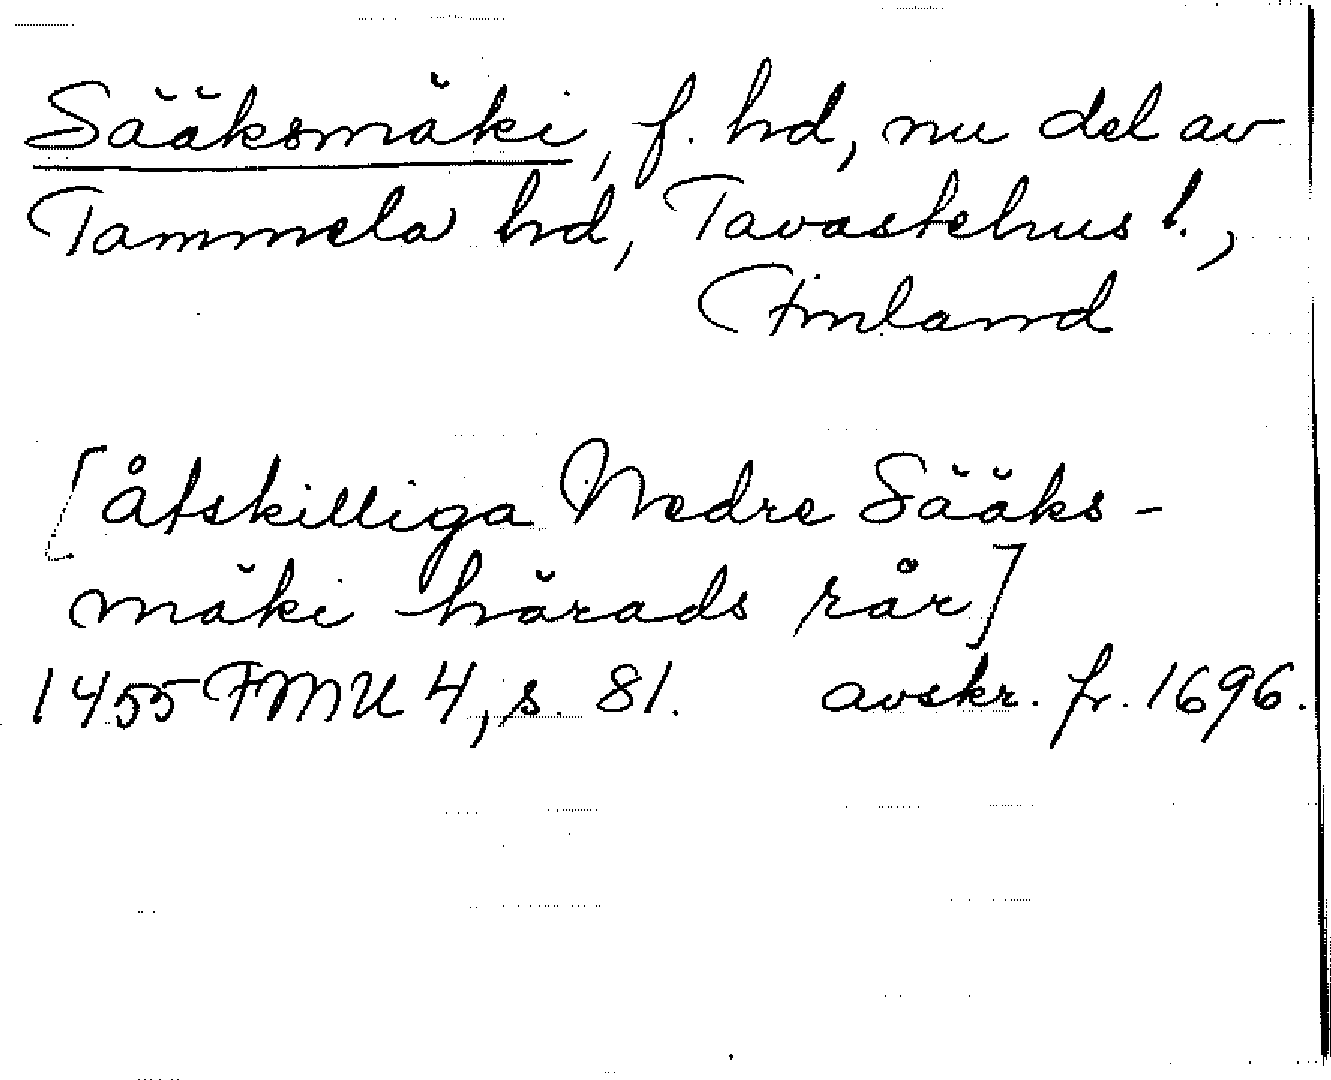 Sääksmäki, f. hd, nu del av
Tammela hd, Tavastehus l.,
Finland
[åtskilliga Nedre Sääks-
mäki härads rår]
1455 FMU 4, s. 81. avskr. fr. 1696.